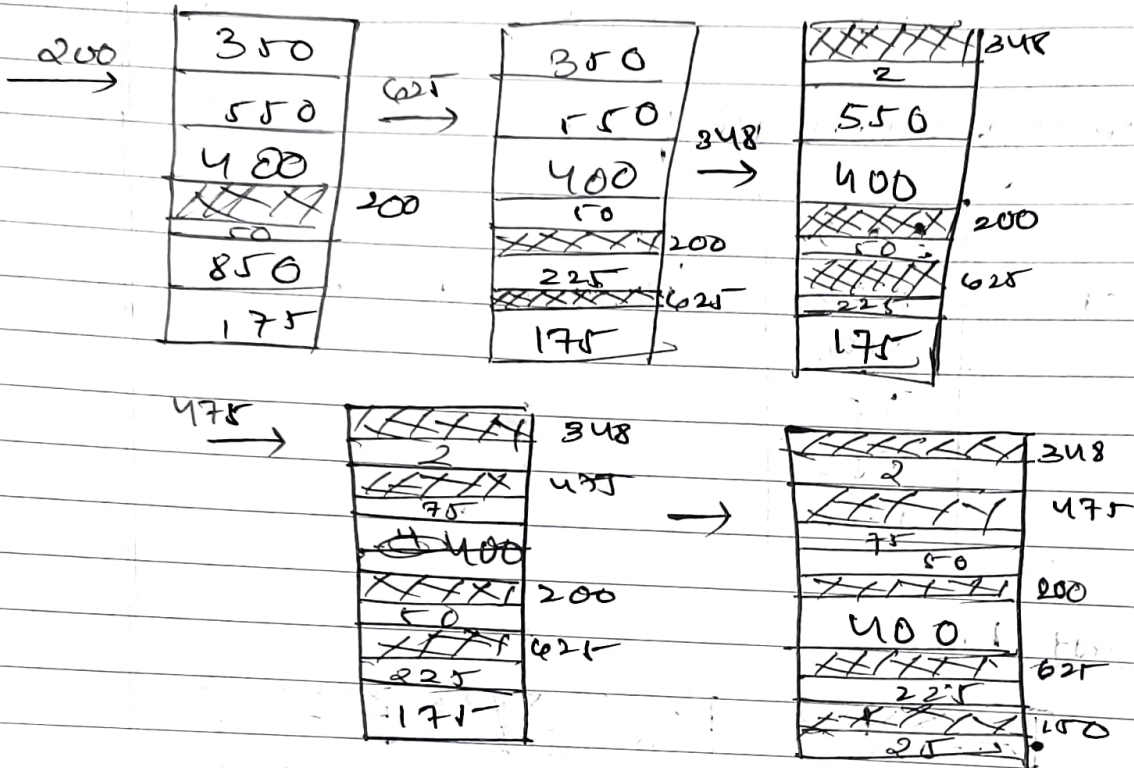 200 →
350
550
400
200
50
850
175
625 →
350
550
400
50
200
225
625
175
348 →
348
2
550
400
200
50
625
225
175
475 →
348
2
475
75
400
200
50
625
225
175
→
348
2
475
75
50
200
400
625
225
150
25